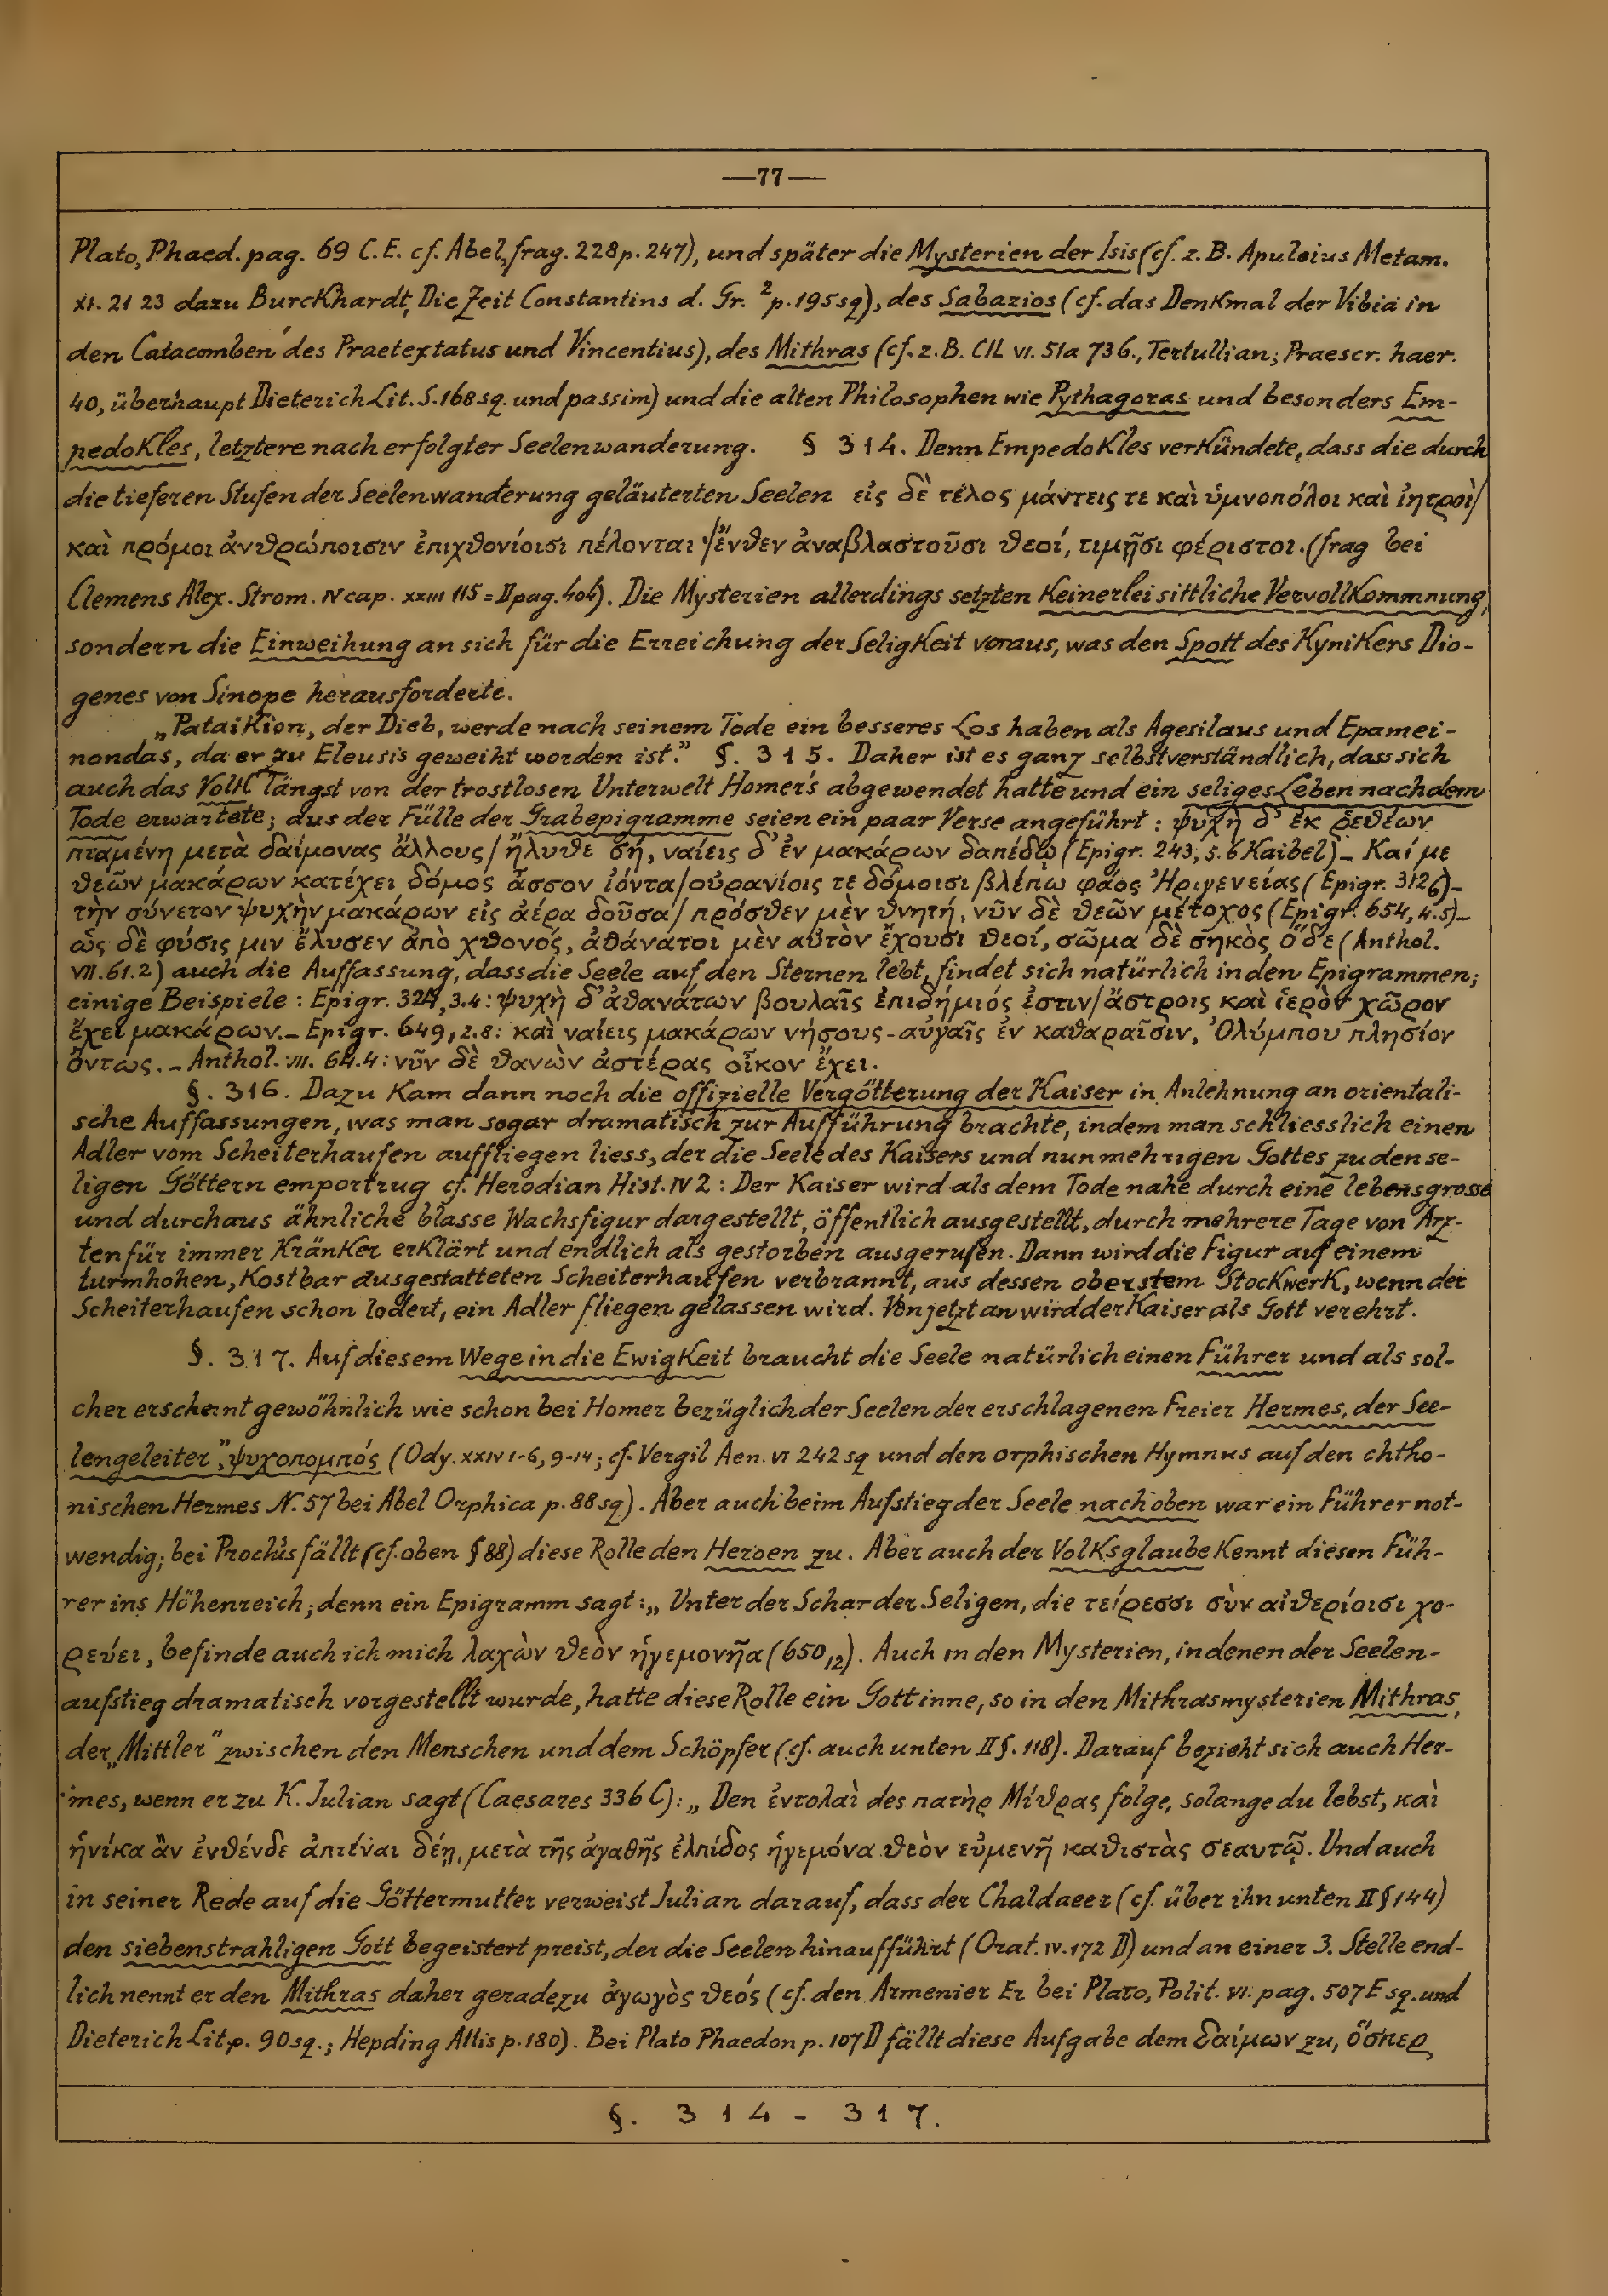 —77—
Plato, Phaed. pag. 69 C.E. cf. Abel, frag. 228 p. 247), und später die Mysterien der Isis (cf. z. B. Apuleius Metam.
XI. 21 23 dazu Burckhardt, Die Zeit Constantins d. Gr. ²p. 195 sq), des Sabazios (cf. das Denkmal der Vibia in
den Catacomben des Praetextatus und Vincentius), des Mithras (cf. z. B. CIL VI. 51a 736., Tertullian; Praescr. haer.
40, überhaupt Dieterich Lit. S. 168 sq. und passim) und die alten Philosophen wie Pythagoras und besonders Em-
pedokles, letztere nach erfolgter Seelenwanderung. § 314. Denn Empedokles verkündete, dass die durch
die tieferen Stufen der Seelenwanderung geläuterten Seelen εἰς δὲ τέλος μάντεις τε καὶ ὑμνοπόλοι καὶ ἰητροὶ/
καὶ πρόμοι ἀνθρώποισιν ἐπιχθονίοισι πέλονται·/ἔνθεν ἀναβλαστοῦσι θεοί, τιμῇσι φέριστοι. (frag bei
Clemens Alex. Strom. IV cap. XXIII 115 = II pag. 404). Die Mysterien allerdings setzten keinerlei sittliche Vervollkommnung,
sondern die Einweihung an sich für die Erreichung der Seligkeit voraus, was den Spott des Kynikers Dio-
genes von Sinope herausforderte.
„Pataikion, der Dieb, werde nach seinem Tode ein besseres Los haben als Agesilaus und Epamei-
nondas, da er zu Eleusis geweiht worden ist.” §. 315. Daher ist es ganz selbstverständlich, dass sich
auch das Volk längst von der trostlosen Unterwelt Homer's abgewendet hatte und ein seliges Leben nach dem
Tode erwartete; aus der Fülle der Grabepigramme seien ein paar Verse angeführt: ψυχὴ δ' ἐκ ῥεθέων
πταμένη μετὰ δαίμονας ἄλλους/ἤλυθε σή, ναίεις δ' ἐν μακάρων δαπέδῳ (Epigr. 243, 5.6 Kaibel) – Καί με
θεῶν μακάρων κατέχει δόμος ἆσσον ἰόντα/οὐρανίοις τε δόμοισι βλέπω φάος Ἠριγενείας (Epigr. 312 6) –
τὴν σύνετον ψυχὴν μακάρων εἰς ἀέρα δοῦσα/πρόσθεν μὲν θνητή, νῦν δὲ θεῶν μέτοχος (Epigr. 654, 4.5) –
ὣς δὲ φύσις μιν ἔλυσεν ἀπὸ χθονός, ἀθάνατοι μὲν αὐτὸν ἔχουσι θεοί, σῶμα δὲ σηκὸς ὅδε (Anthol.
VII. 61.2) auch die Auffassung, dass die Seele auf den Sternen lebt, findet sich natürlich in den Epigrammen;
einige Beispiele: Epigr. 324, 3.4: ψυχὴ δ' ἀθανάτων βουλαῖς ἐπιδήμιός ἐστιν/ἄστροις καὶ ἱερὸν χῶρον
ἔχει μακάρων. – Epigr. 649, 2.8: καὶ ναίεις μακάρων νήσους - αὐγαῖς ἐν καθαραῖσιν, Ὀλύμπου πλησίον
ὄντως. – Anthol. VII. 64.4: νῦν δὲ θανὼν ἀστέρας οἶκον ἔχει.
§. 316. Dazu kam dann noch die offizielle Vergötterung der Kaiser in Anlehnung an orientali-
sche Auffassungen, was man sogar dramatisch zur Aufführung brachte, indem man schliesslich einen
Adler vom Scheiterhaufen auffliegen liess, der die Seele des Kaisers und nunmehrigen Gottes zu den se-
ligen Göttern emportrug cf. Herodian Hist. IV 2: Der Kaiser wird als dem Tode nahe durch eine lebensgrosse
und durchaus ähnliche blasse Wachsfigur dargestellt, öffentlich ausgestellt, durch mehrere Tage von Ärz-
ten für immer kränker erklärt und endlich als gestorben ausgerufen. Dann wird die Figur auf einem
turmhohen, kostbar ausgestatteten Scheiterhaufen verbrannt, aus dessen oberstem Stockwerk, wenn der
Scheiterhaufen schon lodert, ein Adler fliegen gelassen wird. Von jetzt an wird der Kaiser als Gott verehrt.
§. 317. Auf diesem Wege in die Ewigkeit braucht die Seele natürlich einen Führer und als sol-
cher erscheint gewöhnlich wie schon bei Homer bezüglich der Seelen der erschlagenen Freier Hermes, der See-
lengeleiter”, ψυχοπομπός (Ody. XXIV 1-6, 9-14; cf. Vergil Aen. VI 242 sq und den orphischen Hymnus auf den chtho-
nischen Hermes N. 57 bei Abel Orphica p. 88 sq). Aber auch beim Aufstieg der Seele nach oben war ein Führer not-
wendig; bei Proclus fällt (cf. oben § 88) diese Rolle den Heroen zu. Aber auch der Volksglaube kennt diesen Füh-
rer ins Höhenreich; denn ein Epigramm sagt: „Unter der Schar der Seligen, die τείρεσσι σὺν αἰθερίοισι χο-
ρεύει, befinde auch ich mich λαχὼν θεὸν ἡγεμονῆα (650,12). Auch in den Mysterien, in denen der Seelen-
aufstieg dramatisch vorgestellt wurde, hatte diese Rolle ein Gott inne, so in den Mithrasmysterien Mithras,
der „Mittler” zwischen den Menschen und dem Schöpfer (cf. auch unten II §. 118). Darauf bezieht sich auch Her-
mes, wenn er zu K. Julian sagt (Caesares 336 C): „Den ἐντολαὶ des πατὴρ Μίθρας folge, solange du lebst, καὶ
ἡνίκα ἂν ἐνθένδε ἀπιέναι δέῃ, μετὰ τῆς ἀγαθῆς ἐλπίδος ἡγεμόνα θεὸν εὐμενῆ καθιστὰς σεαυτῷ. Und auch
in seiner Rede auf die Göttermutter verweist Julian darauf, dass der Chaldaeer (cf. über ihn unten II § 144)
den siebenstrahligen Gott begeistert preist, der die Seelen hinaufführt (Orat. IV. 172 D) und an einer 3. Stelle end-
lich nennt er den Mithras daher geradezu ἀγωγὸς θεός (cf. den Armenier Er bei Plato, Polit. VI. pag. 507 E sq. und
Dieterich Lit. p. 90 sq.; Hepding Attis p. 180). Bei Plato Phaedon p. 107 D fällt diese Aufgabe dem δαίμων zu, ὅσπερ
§. 314 - 317.